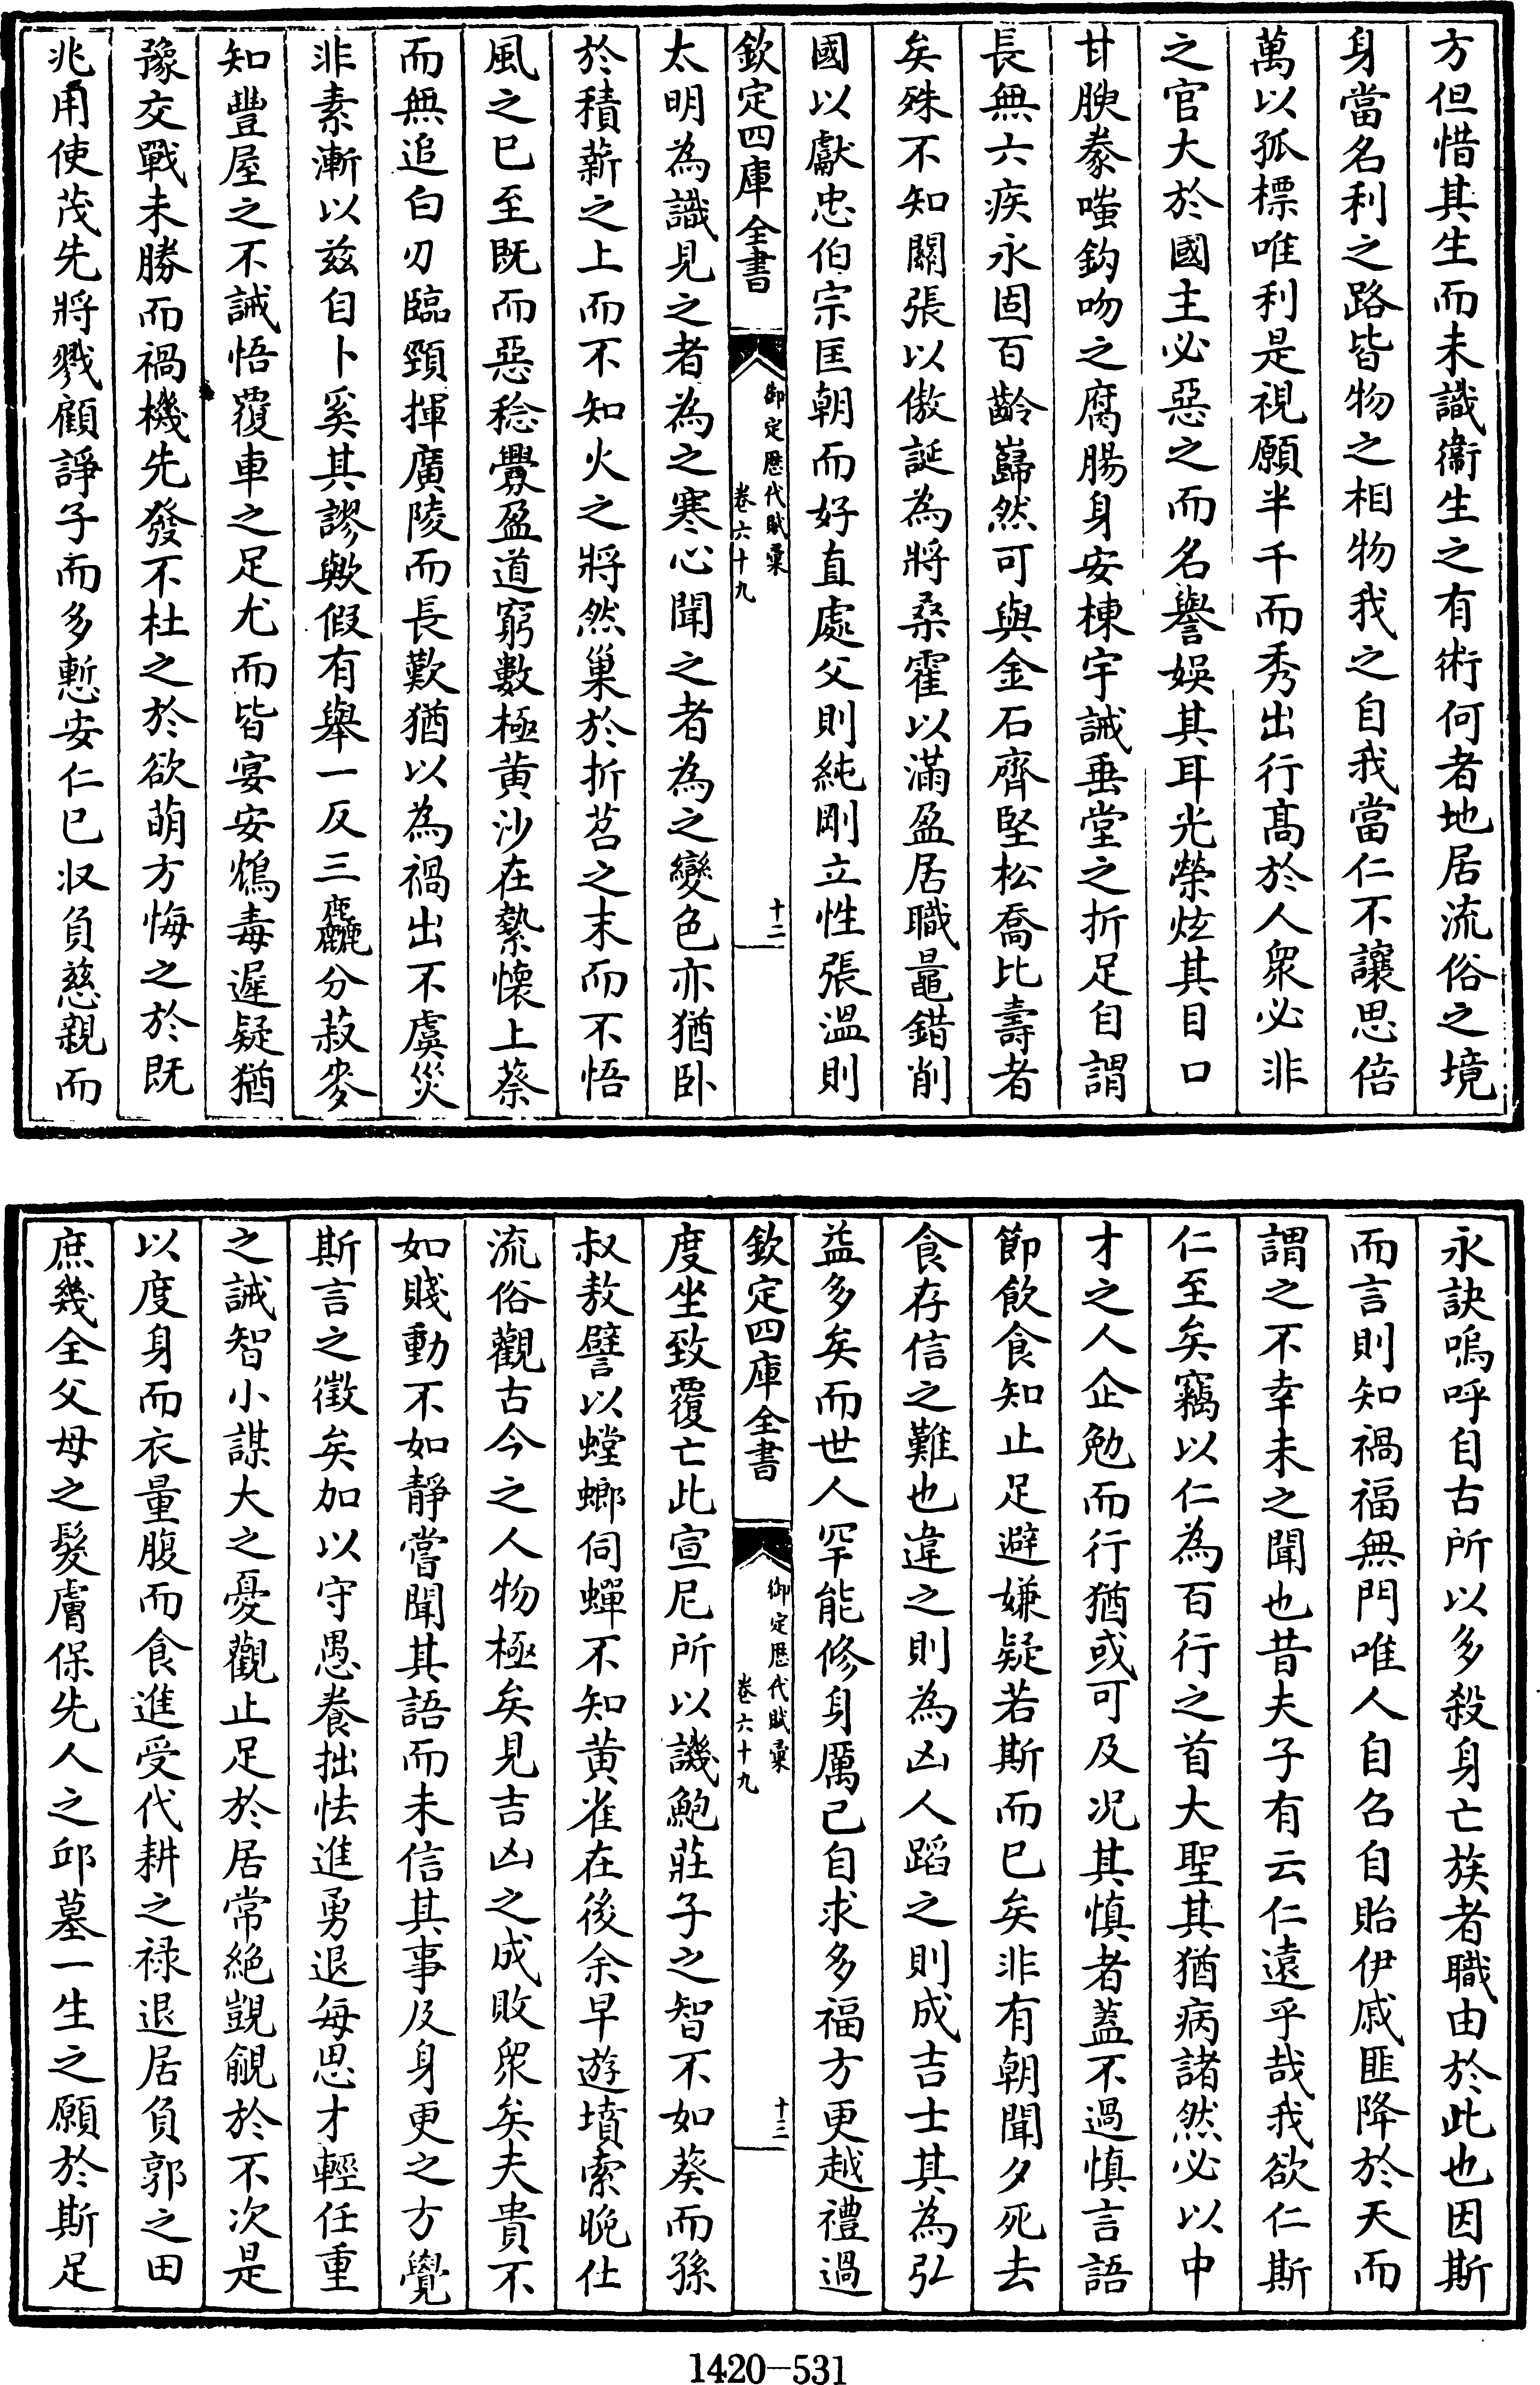 方但惜其生而未識衞生之有術何者地居流俗之境
身當名利之路皆物之相物我之自我當仁不讓思倍
萬以孤標唯利是視願半千而秀出行髙於人衆必非
之官大於國主必惡之而名譽娛其耳光榮炫其目口
甘腴豢嗤鈎吻之腐腸身安棟宇誡垂堂之折足自謂
長無六疾永固百齡巋然可與金石齊堅松喬比壽者
矣殊不知關張以傲誕為將桑霍以滿盈居職鼂錯削
國以獻忠伯宗匡朝而好直處父則純剛立性張溫則
欽定四庫全書
御定歷代賦彙
卷六十九
十二
太明為識見之者為之寒心聞之者為之變色亦猶卧
於積薪之上而不知火之將然巢於折苕之末而不悟
風之已至既而惡稔釁盈道窮數極黄沙在縶懷上蔡
而無追白刃臨頸揮廣陵而長歎猶以為禍出不虞災
非素漸以兹自卜奚其謬歟假有舉一反三麤分菽麥
知豐屋之不誡悟覆車之足尤而皆宴安鴆毒遲疑猶
豫交戰未勝而禍機先發不杜之於欲萌方悔之於既
兆用使茂先將戮顧諍子而多慙安仁已收負慈親而
永訣嗚呼自古所以多殺身亡族者職由於此也因斯
而言則知禍福無門唯人自召自貽伊戚匪降於天而
謂之不幸未之聞也昔夫子有云仁遠乎哉我欲仁斯
仁至矣竊以仁為百行之首大聖其猶病諸然必以中
才之人企勉而行猶或可及况其慎者蓋不過慎言語
節飲食知止足避嫌疑若斯而已矣非有朝聞夕死去
食存信之難也違之則為凶人蹈之則成吉士其為弘
益多矣而世人罕能修身厲已自求多福方更越禮過
欽定四庫全書
御定歷代賦彙
卷六十九
十三
度坐致覆亡此宣尼所以譏鮑莊子之智不如葵而孫
叔敖譬以螳螂伺蟬不知黄雀在後余早遊墳索晚仕
流俗觀古今之人物極矣見吉凶之成敗衆矣夫貴不
如賤動不如靜嘗聞其語而未信其事及身更之方覺
斯言之徵矣加以守愚養拙怯進勇退每思才輕任重
之誡智小謀大之憂觀止足於居常絶覬覦於不次是
以度身而衣量腹而食進受代耕之禄退居負郭之田
庶幾全父母之髮膚保先人之邱墓一生之願於斯足
1420-531